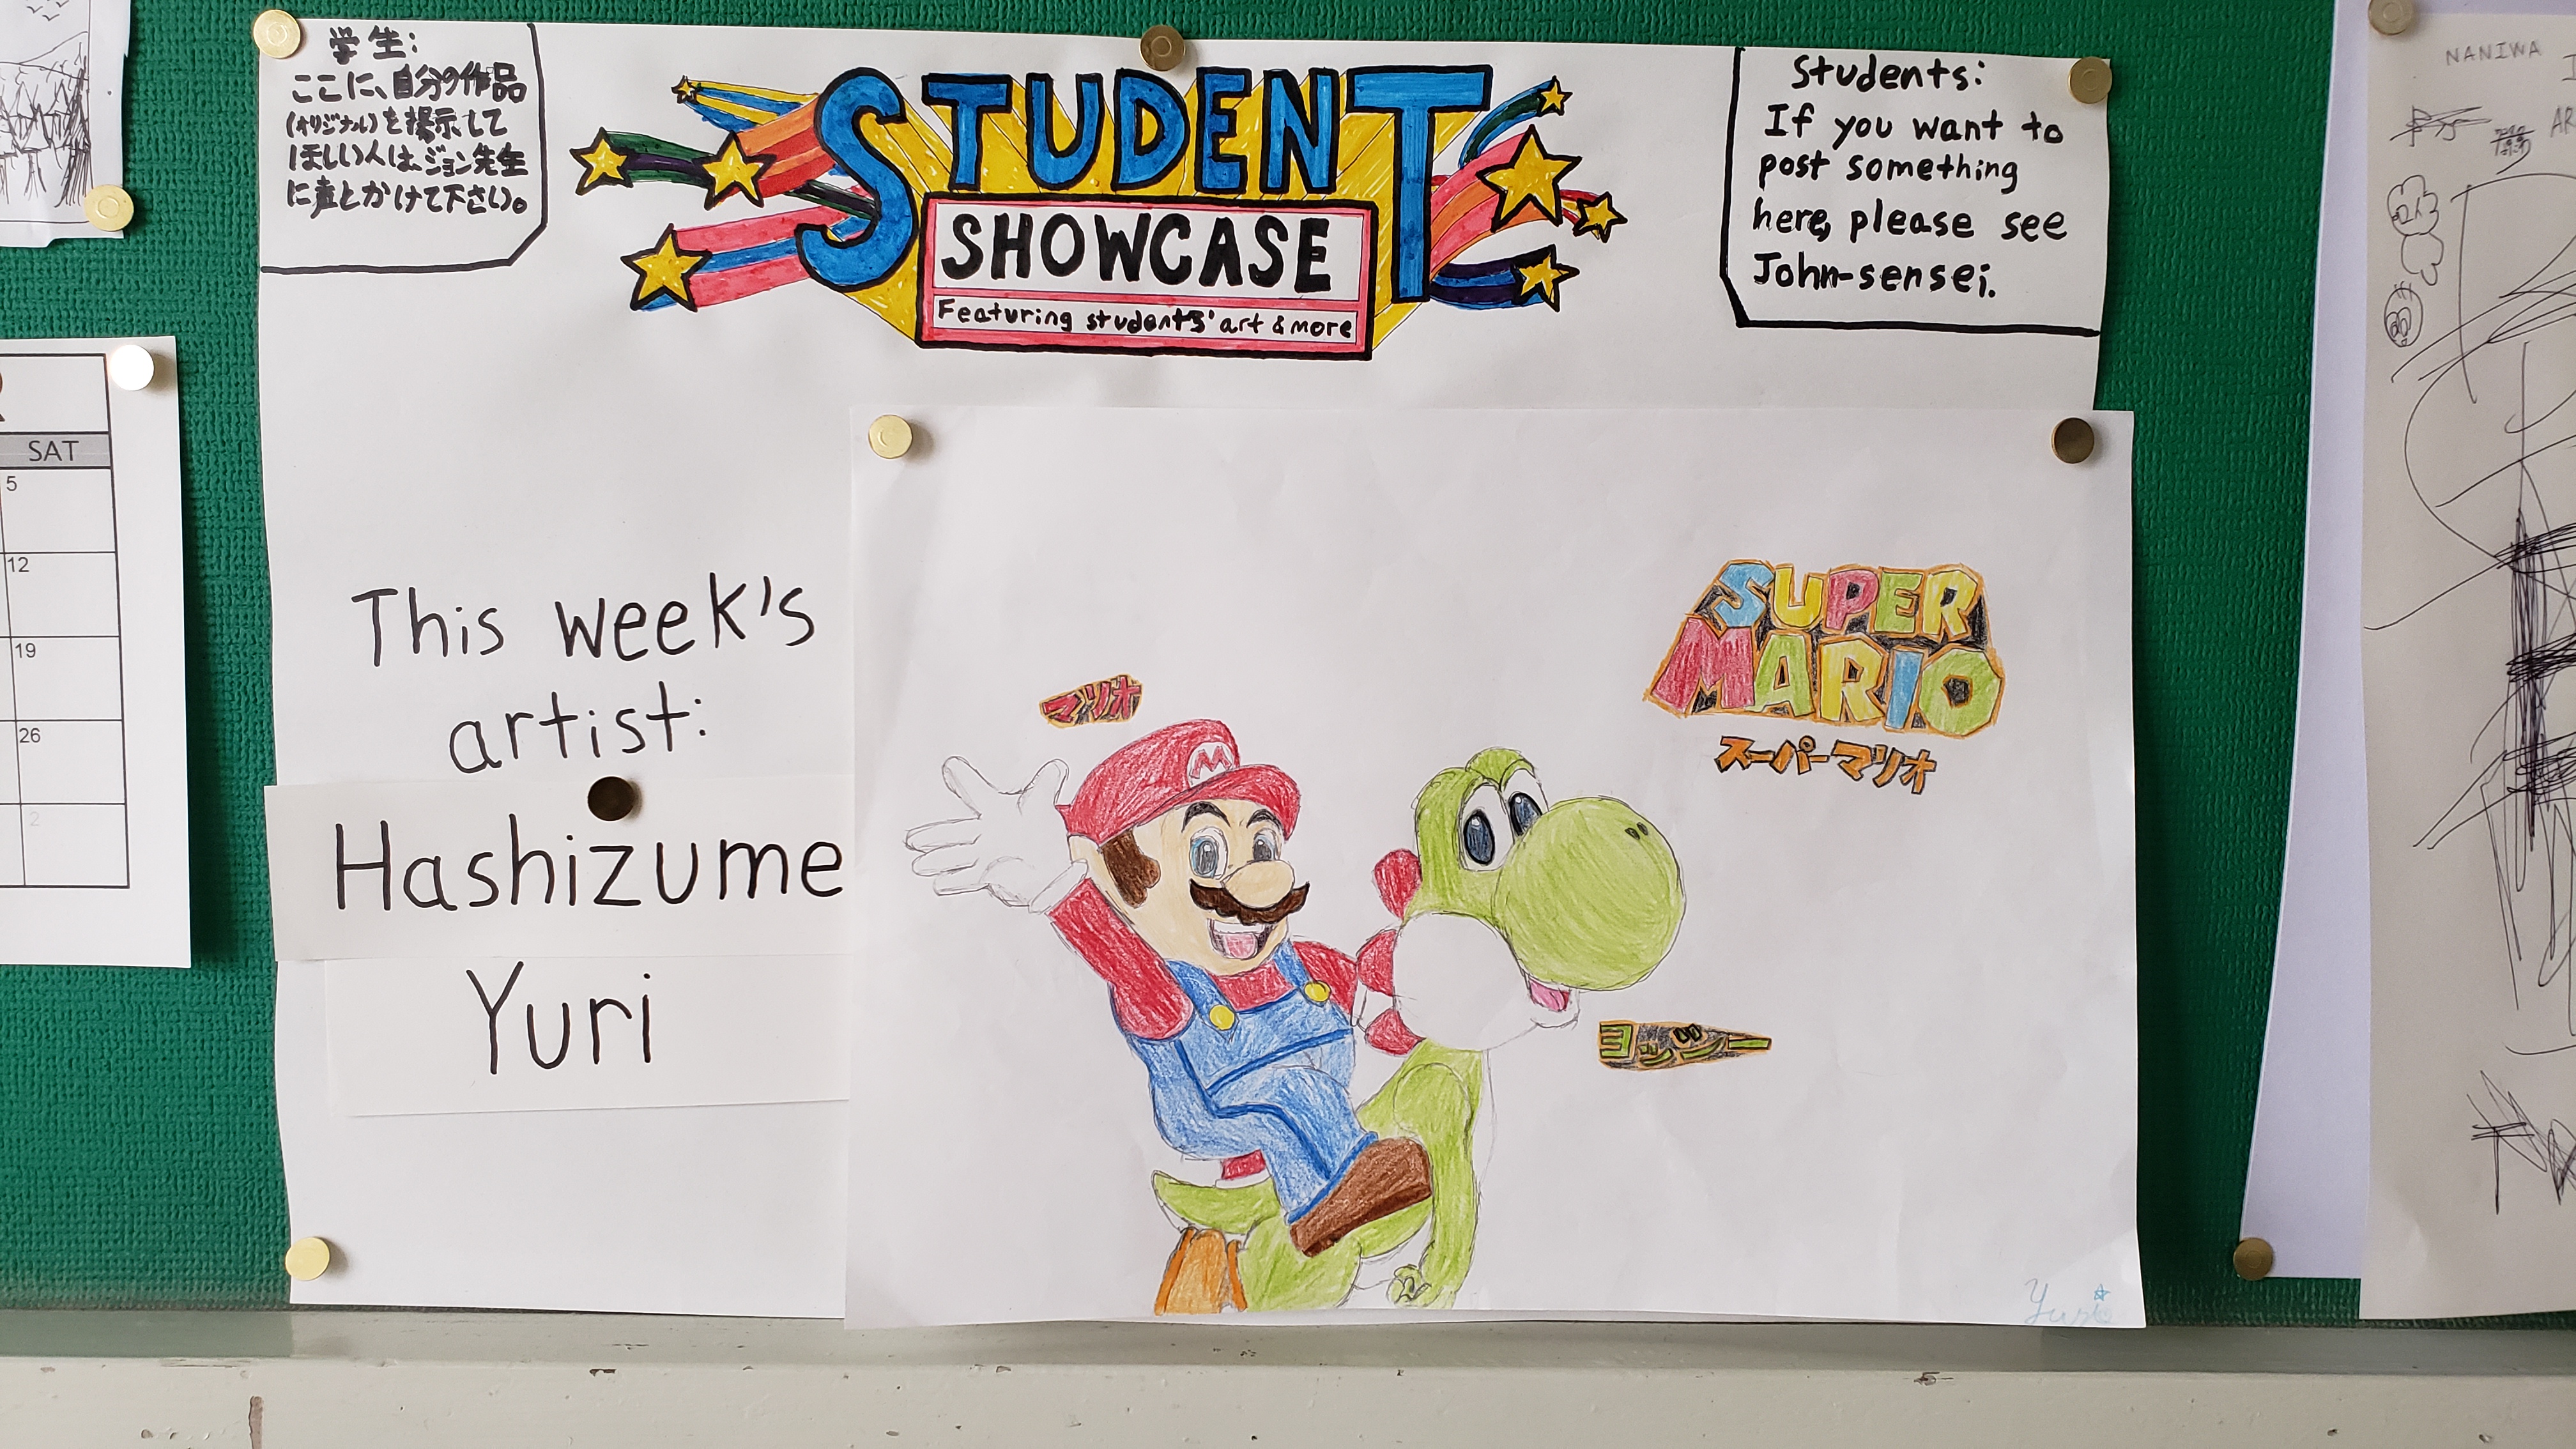 学生:
ここに、自分の作品
(オリジナル)を掲示して
ほしい人は、ジョン先生
に声とかけて下さい。
STUDENT
SHOWCASE
Featuring students' art & more
Students:
If you want to
post something
here, please see
John-sensei.
This week's
artist:
Hashizume
Yuri
マリオ
M
SUPER
MARIO
スーパーマリオ
ヨッシー
Yuri
SAT
5
12
19
26
2
NANIWA